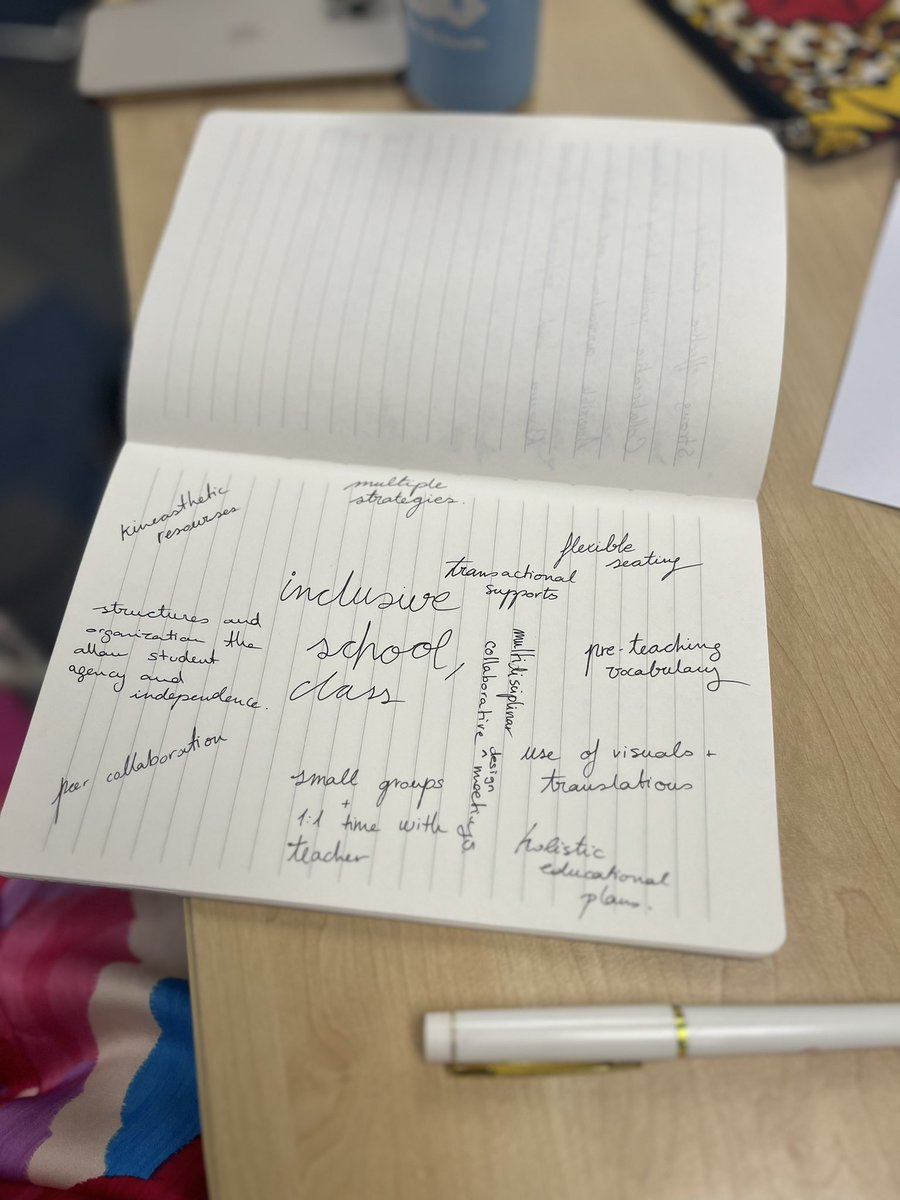 kineasthetic
resourses
multiple
strategies.
flexible
seating
transactional
supports
inclusive
school,
class
structures and
organization the
allow student
agency and
independence.
multidisiplinar
collaborative ^ meetings
design
pre-teaching
vocabulary
peer collaboration
small groups
+
1:1 time with
teacher
use of visuals +
translations
holistic
educational
plans.